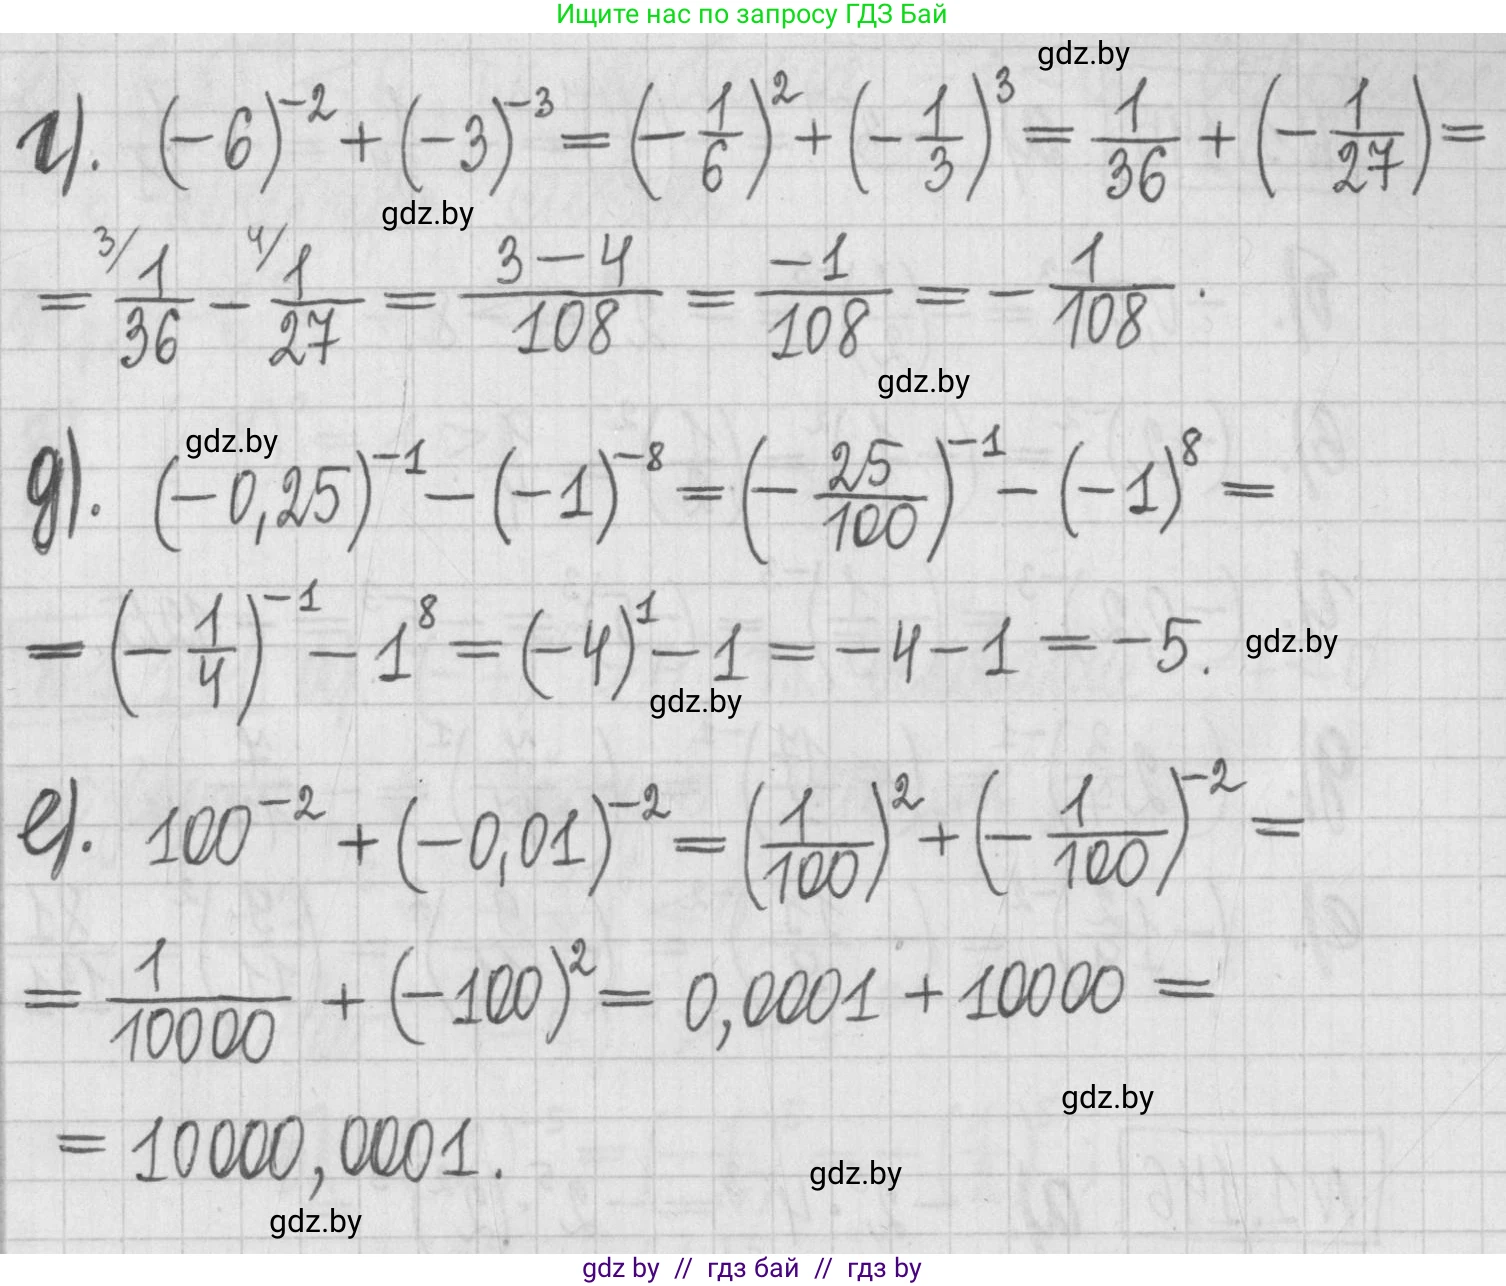 Ищите нас по запросу ГДЗ Бай
gdz.by
г). (-6)^{-2} + (-3)^{-3} = (-\frac{1}{6})^2 + (-\frac{1}{3})^3 = \frac{1}{36} + (-\frac{1}{27}) =
gdz.by
= ^{3/}\frac{1}{36} - ^{4/}\frac{1}{27} = \frac{3-4}{108} = \frac{-1}{108} = -\frac{1}{108}.
gdz.by
gdz.by
д). (-0,25)^{-1} - (-1)^{-8} = (-\frac{25}{100})^{-1} - (-1)^8 =
= (-\frac{1}{4})^{-1} - 1^8 = (-4)^1 - 1 = -4 - 1 = -5.
gdz.by
gdz.by
е). 100^{-2} + (-0,01)^{-2} = (\frac{1}{100})^2 + (-\frac{1}{100})^{-2} =
= \frac{1}{10000} + (-100)^2 = 0,0001 + 10000 =
gdz.by
= 10000,0001.
gdz.by
gdz.by
gdz by // гдз бай // гдз by